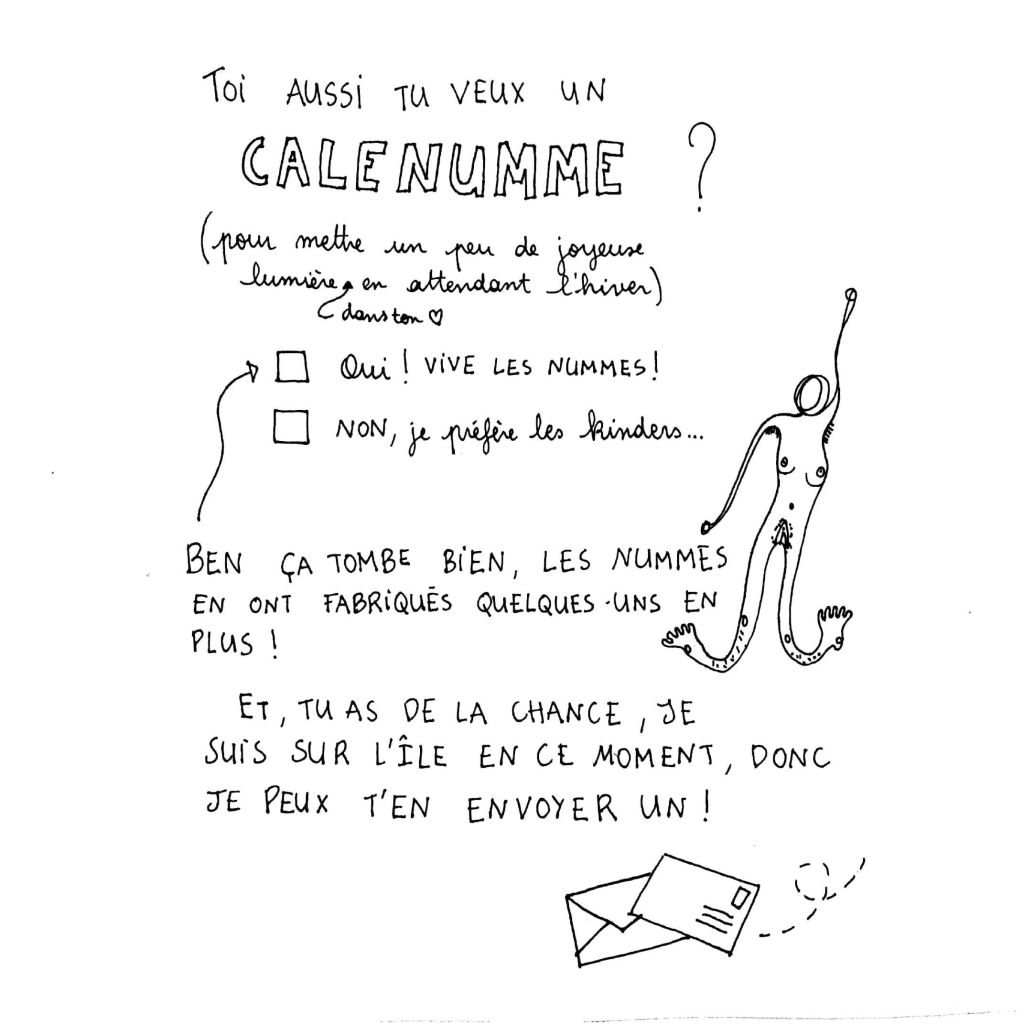 Toi AUSSi TU VEUX UN
CALENUMME ?
(pour mettre un peu de joyeuse
lumière en attendant l'hiver)
dans ton ♡
Oui ! ViVE LES NUMMES !
NON, je préfère les kinders...
BEN ÇA TOMBE BiEN, LES NUMMES
EN ONT FABRIQUÉS QUELQUES-UNS EN
PLUS !
ET, TU AS DE LA CHANCE, JE
SUiS SUR L'ÎLE EN CE MOMENT, DONC
JE PEUX T'EN ENVOYER UN !